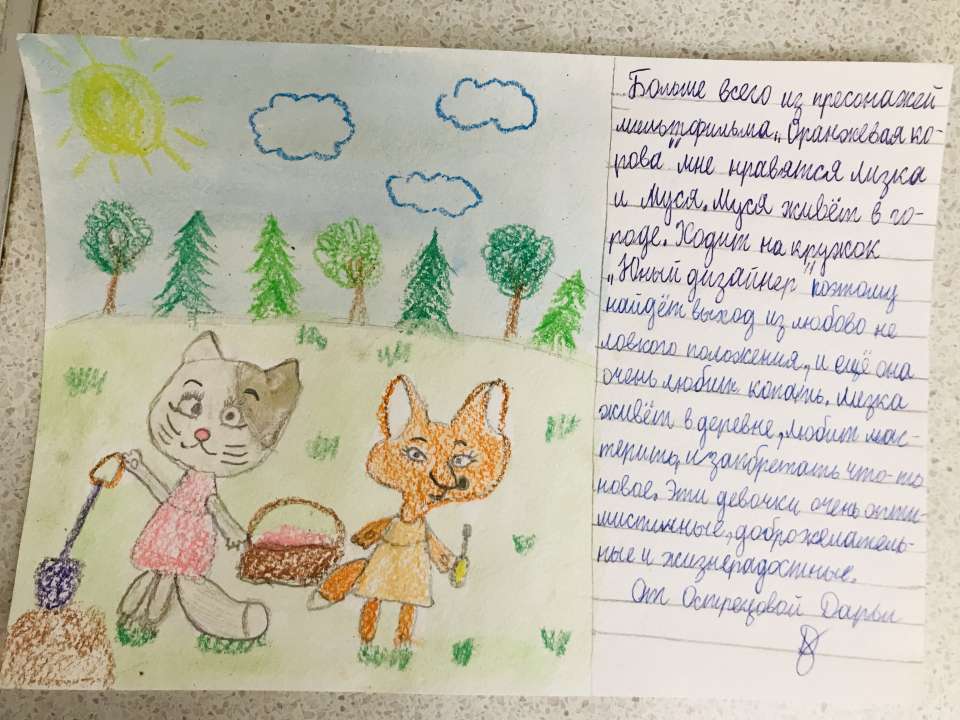 Больше всего из пресонажей
мультфильма „Оранжевая ко-
рова" мне нравятся Лизка
и Муся. Муся живёт в го-
роде. Ходит на кружок
„Юный дизайнер" поэтому
найдёт выход из любово не
ловкого положения, и ещё она
очень любит копать. Лизка
живёт в деревне, любит мас-
терить, и изобретать что-то
новое. Эти девочки очень опти-
мистичные, доброжелатель-
ные и жизнерадостные.
От Острецовой Дарьи